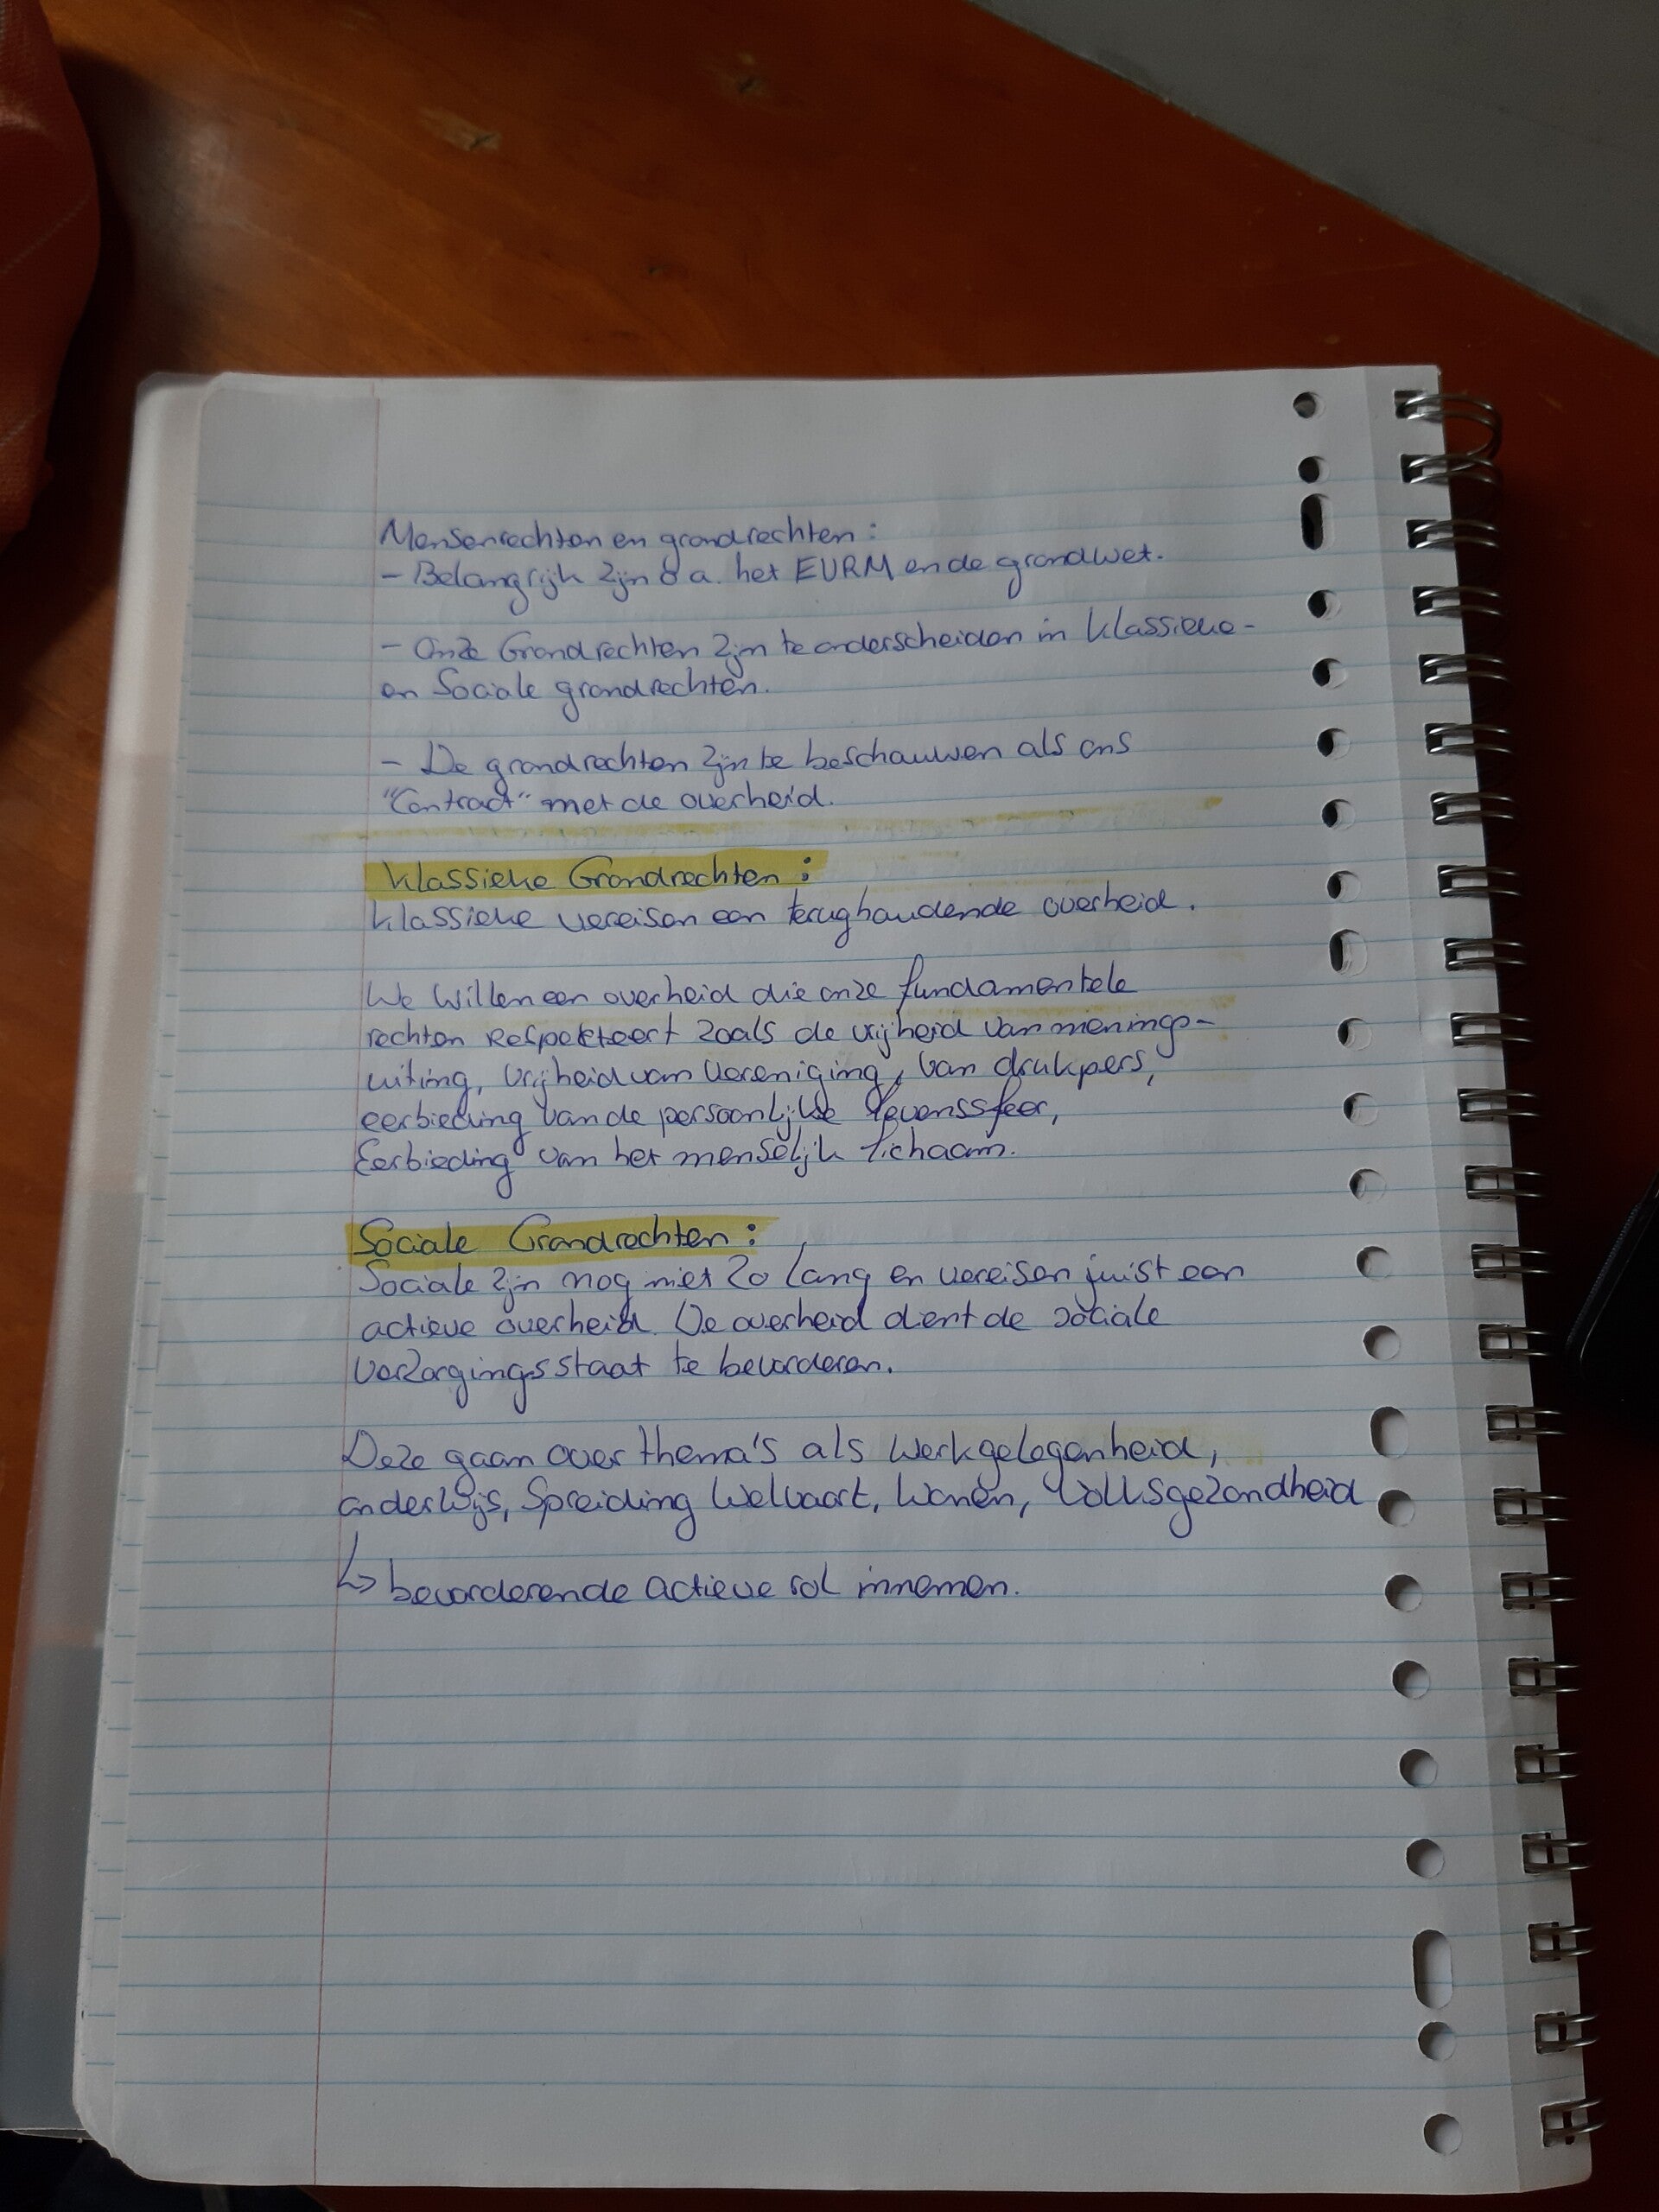 Mensenrechten en grondrechten:
- Belangrijk zijn o.a. het EURM en de grondwet.
- Onze Grondrechten zijn te onderscheiden in klassieke-
en Sociale grondrechten.
- De grondrechten zijn te beschouwen als ons
"Contract" met de overheid.
Klassieke Grondrechten:
Klassieke vereisen een terughoudende overheid.
We willen een overheid die onze fundamentele
rechten Respekteert zoals de vrijheid van menings-
uiting, vrijheid van vereniging, van drukpers,
eerbieding van de persoonlijke levenssfeer,
Eerbieding van het menselijk lichaam.
Sociale Grondrechten:
Sociale zijn nog niet zo lang en vereisen juist een
actieve overheid. De overheid dient de sociale
verzorgingsstaat te bevorderen.
Deze gaan over thema's als werkgelegenheid,
onderwijs, Spreiding Welvaart, Wonen, Volksgezondheid
↳ bevorderende actieve rol innemen.